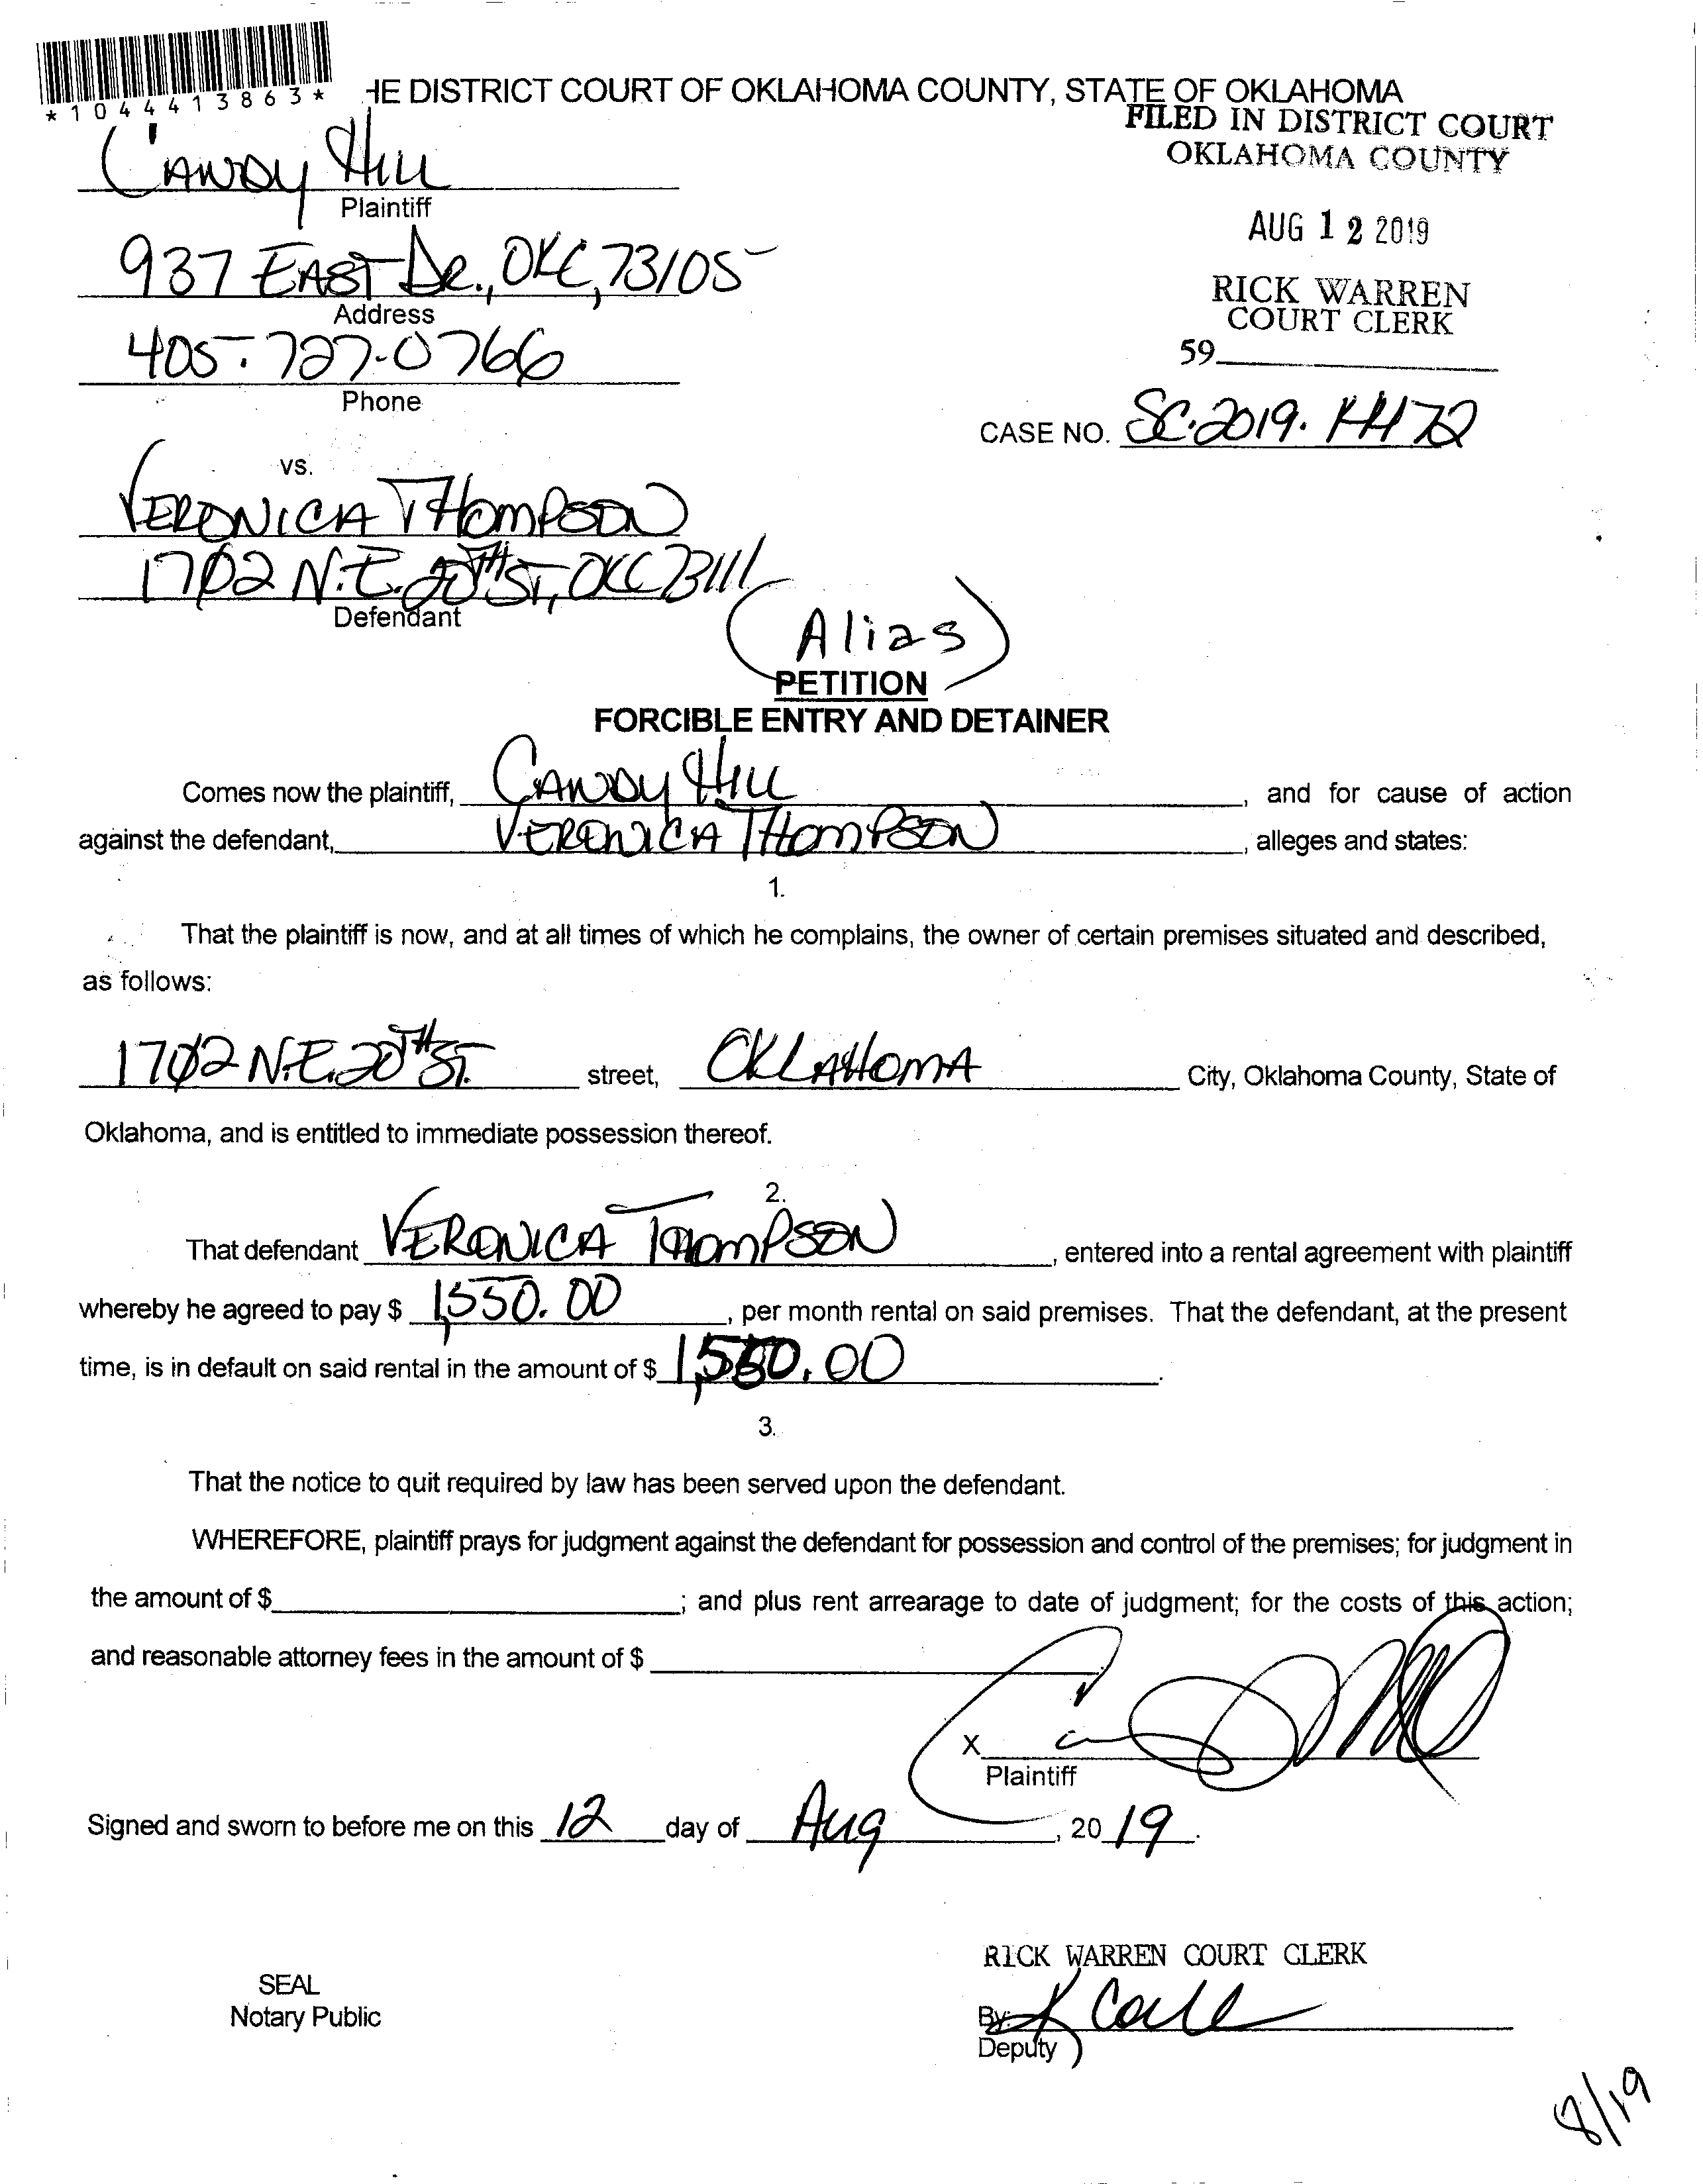 *1044413863*
HE DISTRICT COURT OF OKLAHOMA COUNTY, STATE OF OKLAHOMA
FILED IN DISTRICT COURT
OKLAHOMA COUNTY
CANDY HILL
Plaintiff
AUG 12 2019
937 EAST DR., OKC, 73105
Address
RICK WARREN
COURT CLERK
405.727-0766
Phone
59
CASE NO. SC.2019.14472
vs.
VERONICA THOMPSON
1702 N.E. 20TH ST, OKC 73111
Defendant
(Alias)
PETITION
FORCIBLE ENTRY AND DETAINER
Comes now the plaintiff, CANDY HILL, and for cause of action
against the defendant, VERONICA THOMPSON, alleges and states:
1.
That the plaintiff is now, and at all times of which he complains, the owner of certain premises situated and described,
as follows:
1702 N.E. 20TH ST. street, OKLAHOMA City, Oklahoma County, State of
Oklahoma, and is entitled to immediate possession thereof.
2.
That defendant VERONICA THOMPSON, entered into a rental agreement with plaintiff
whereby he agreed to pay $ 1,550.00, per month rental on said premises. That the defendant, at the present
time, is in default on said rental in the amount of $ 1,550.00.
3.
That the notice to quit required by law has been served upon the defendant.
WHEREFORE, plaintiff prays for judgment against the defendant for possession and control of the premises; for judgment in
the amount of $; and plus rent arrearage to date of judgment; for the costs of this action;
and reasonable attorney fees in the amount of $
X
Plaintiff
Signed and sworn to before me on this 12 day of Aug, 2019.
RICK WARREN COURT CLERK
SEAL
Notary Public
By:
Deputy
8/19